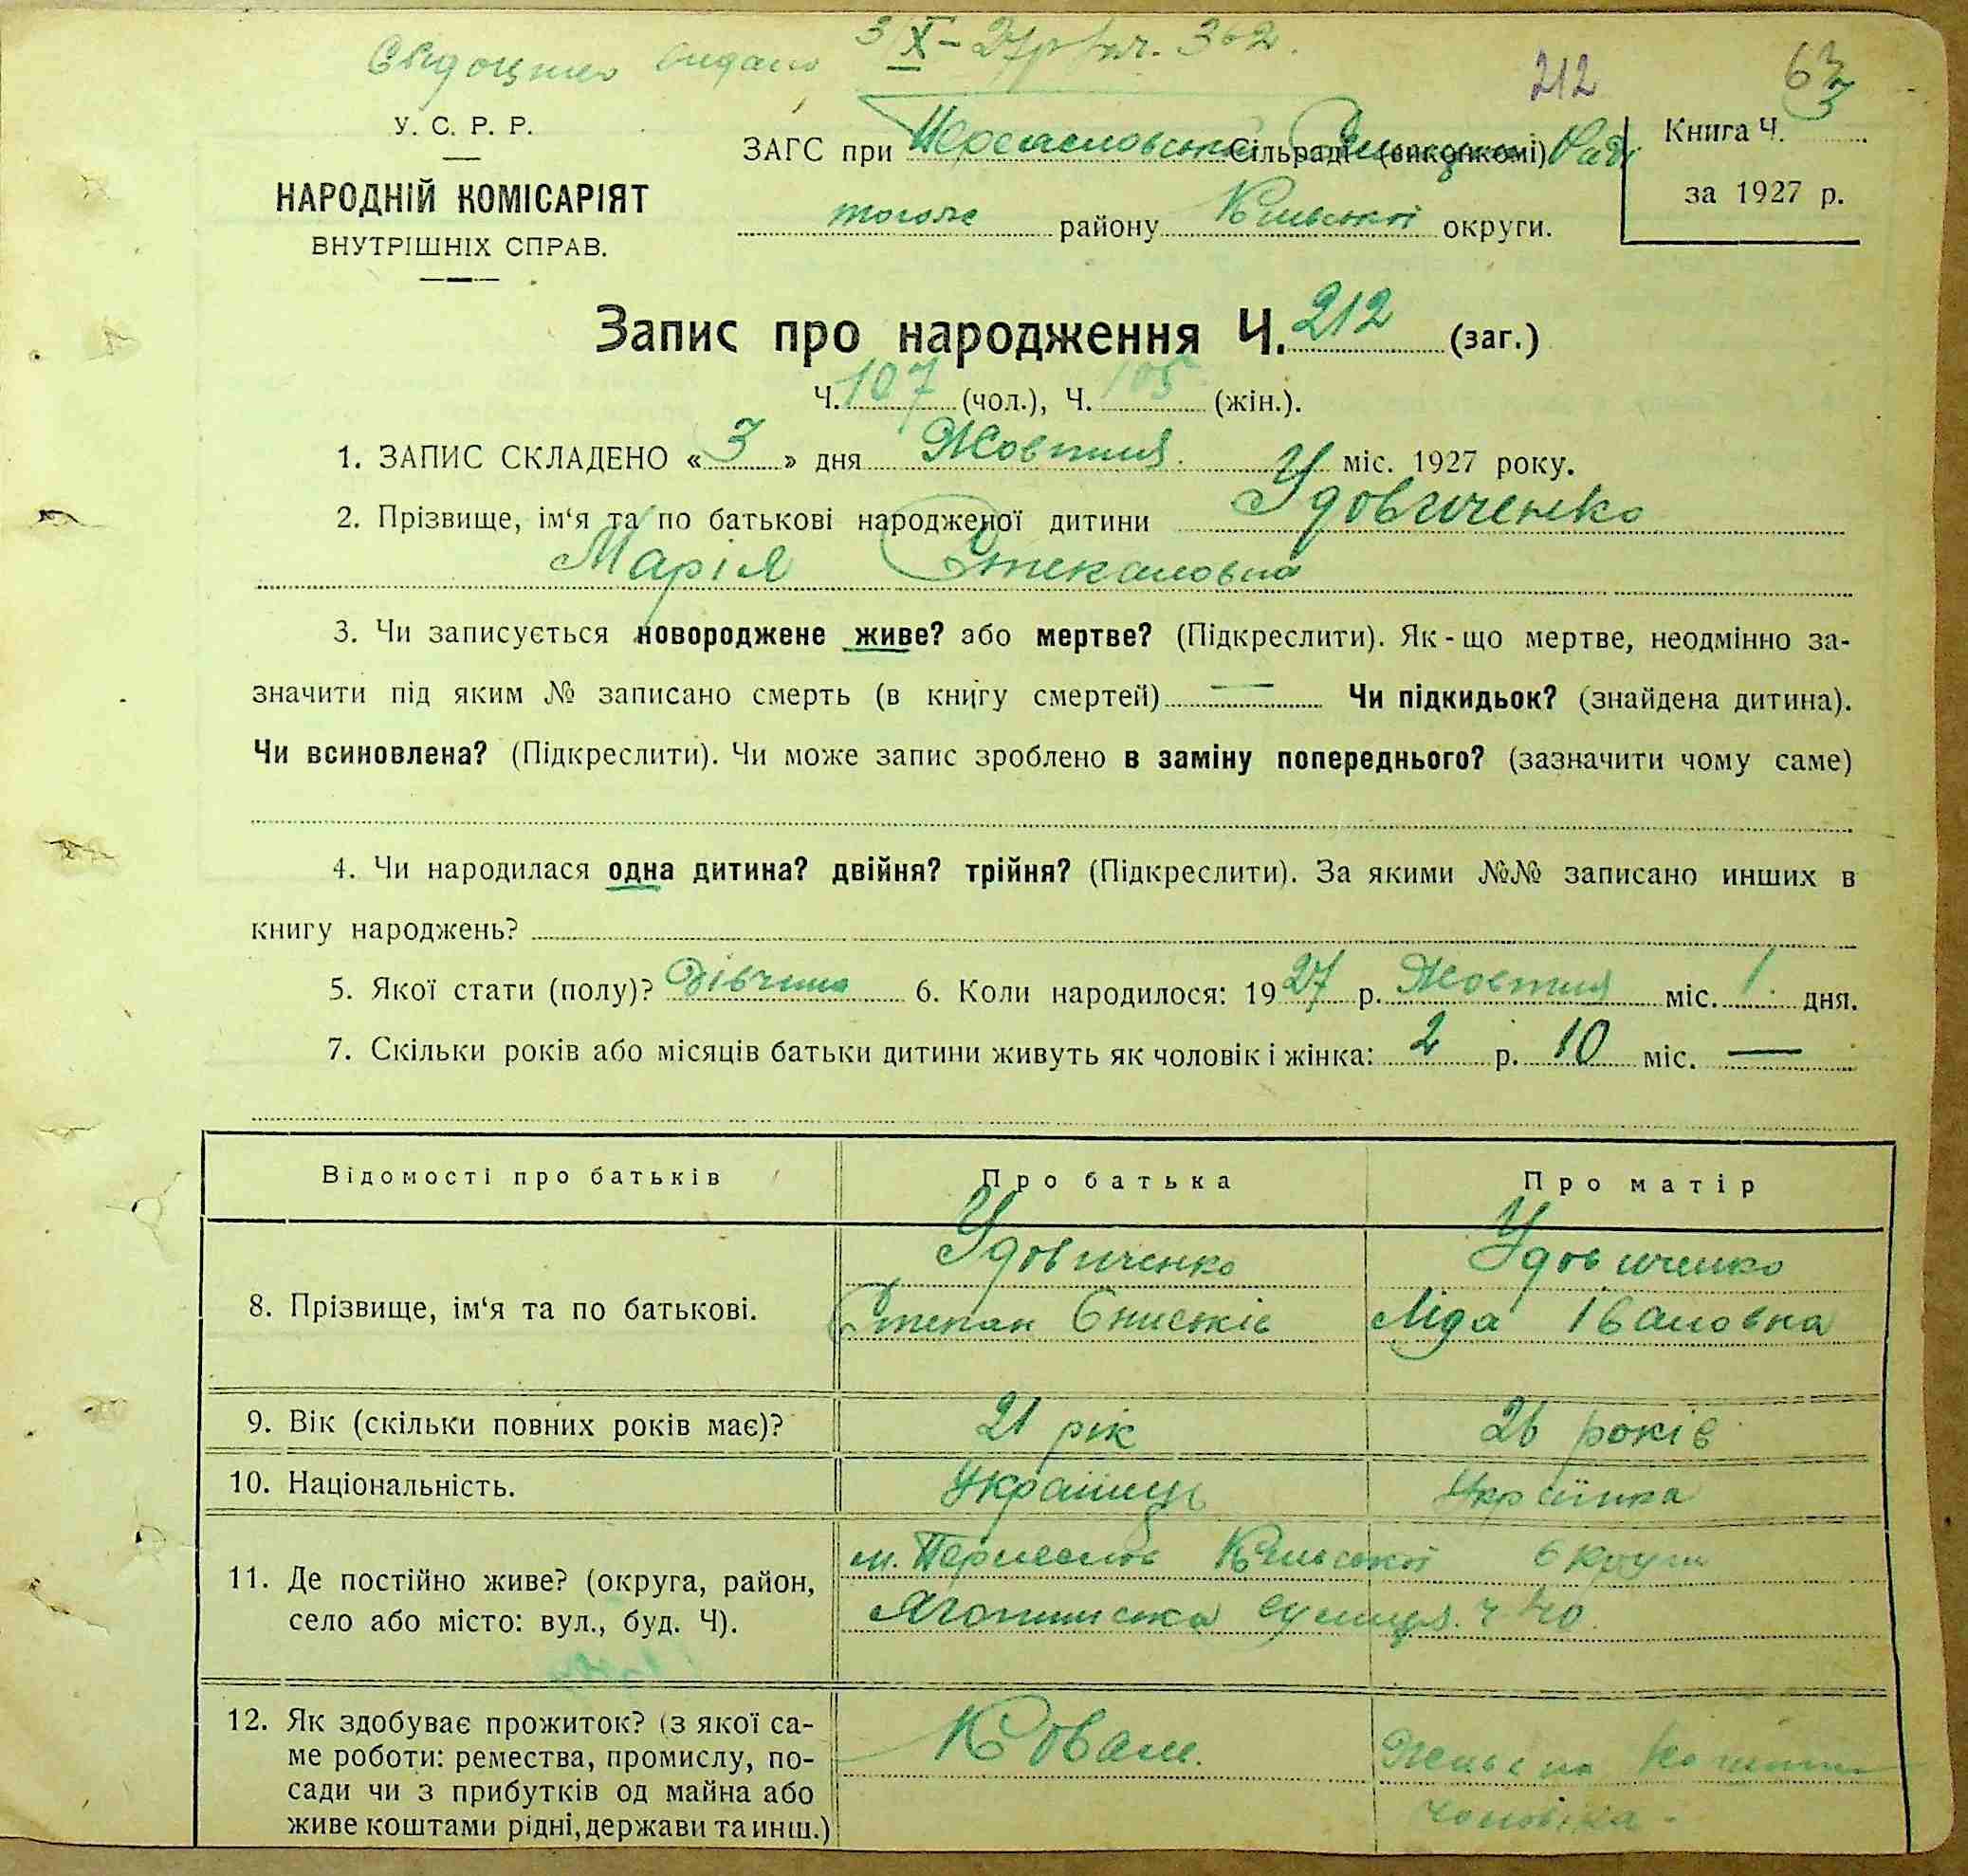 Свідоцтво видано 3/X-27р № 302.
212 63
У. С. Р. Р.
НАРОДНІЙ КОМІСАРІЯТ
ВНУТРІШНІХ СПРАВ.
ЗАГС при Сільраді (виконкомі) Раді
тогож району Київської округи.
Книга Ч. 3
за 1927 р.
Запис про народження Ч. 212 (заг.)
Ч. 107 (чол.), Ч. 105 (жін.).
1. ЗАПИС СКЛАДЕНО « 3 » дня Жовтня міс. 1927 року.
2. Прізвище, ім‘я та по батькові народженої дитини Удовиченко
Марія Степановна
3. Чи записується новороджене живе? або мертве? (Підкреслити). Як-що мертве, неодмінно за-
значити під яким № записано смерть (в книгу смертей) — Чи підкидьок? (знайдена дитина).
Чи всиновлена? (Підкреслити). Чи може запис зроблено в заміну попереднього? (зазначити чому саме)
4. Чи народилася одна дитина? двійня? трійня? (Підкреслити). За якими №№ записано инших в
книгу народжень?
5. Якої стати (полу)? Дівчина 6. Коли народилося: 1927 р. Жовтня міс. 1 дня.
7. Скільки років або місяців батьки дитини живуть як чоловік і жінка: 2 р. 10 міс. —
Відомості про батьків Про батька Про матір
8. Прізвище, ім‘я та по батькові.
Удовиченко
Степан
Удовиченко
Ліда Івановна
9. Вік (скільки повних років має)? 21 рік 26 років
10. Національність. Українець Українка
11. Де постійно живе? (округа, район,
село або місто: вул., буд. Ч).
м. Переяслав Київської округи
Яготинська вулиця ч 40
12. Як здобуває прожиток? (з якої са-
ме роботи: ремества, промислу, по-
сади чи з прибутків од майна або
живе коштами рідні, держави та инш.)
Коваль.
Живе на кошти
чоловіка -